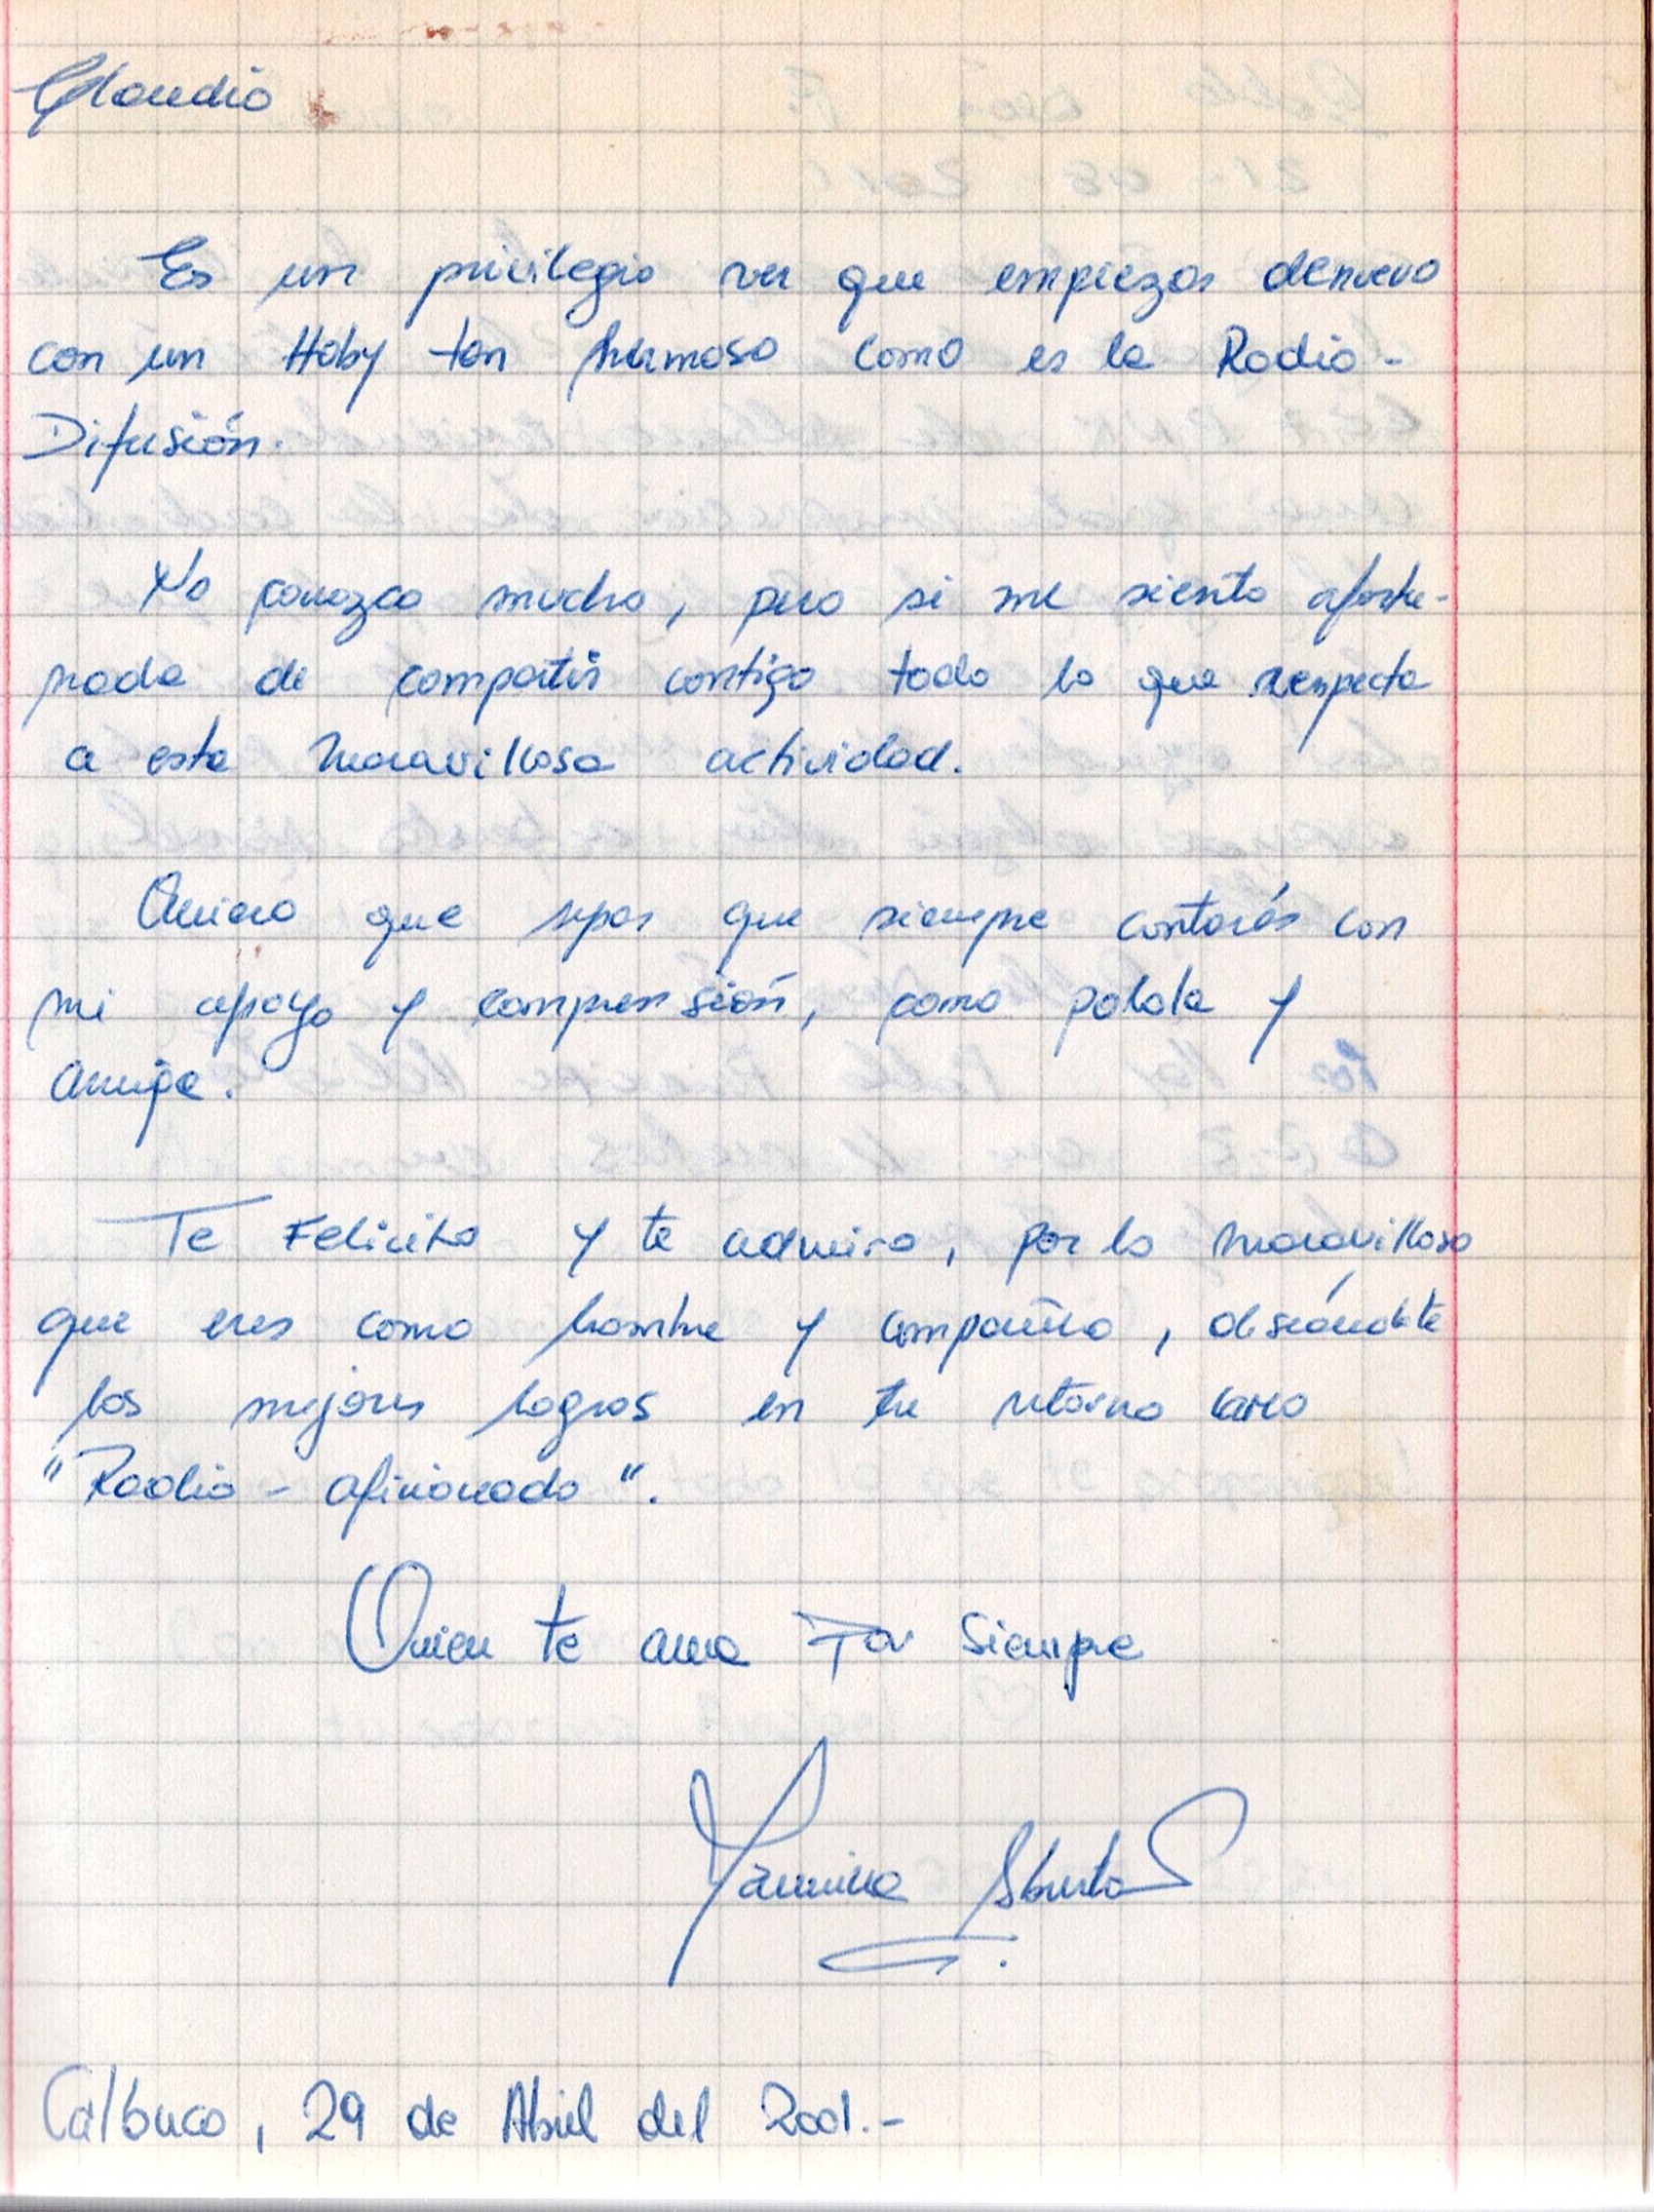 Claudio
Es un privilegio ver que empiezas denuevo
con un Hoby tan hermoso como es la Radio-
Difusión.
No conozco mucho, pero si me siento afortu-
nada de compartir contigo todo lo que respecta
a esta maravillosa actividad.
Quiero que sepas que siempre contarás con
mi apoyo y comprensión, como polola y
amiga.
Te Felicito y te admiro, por lo maravilloso
que eres como hombre y compañero, deseándote
los mejores logros en tu retorno como
"Radio - aficionado".
Quien te ama Por Siempre
Yasmina
Calbuco, 29 de Abril del 2001.-